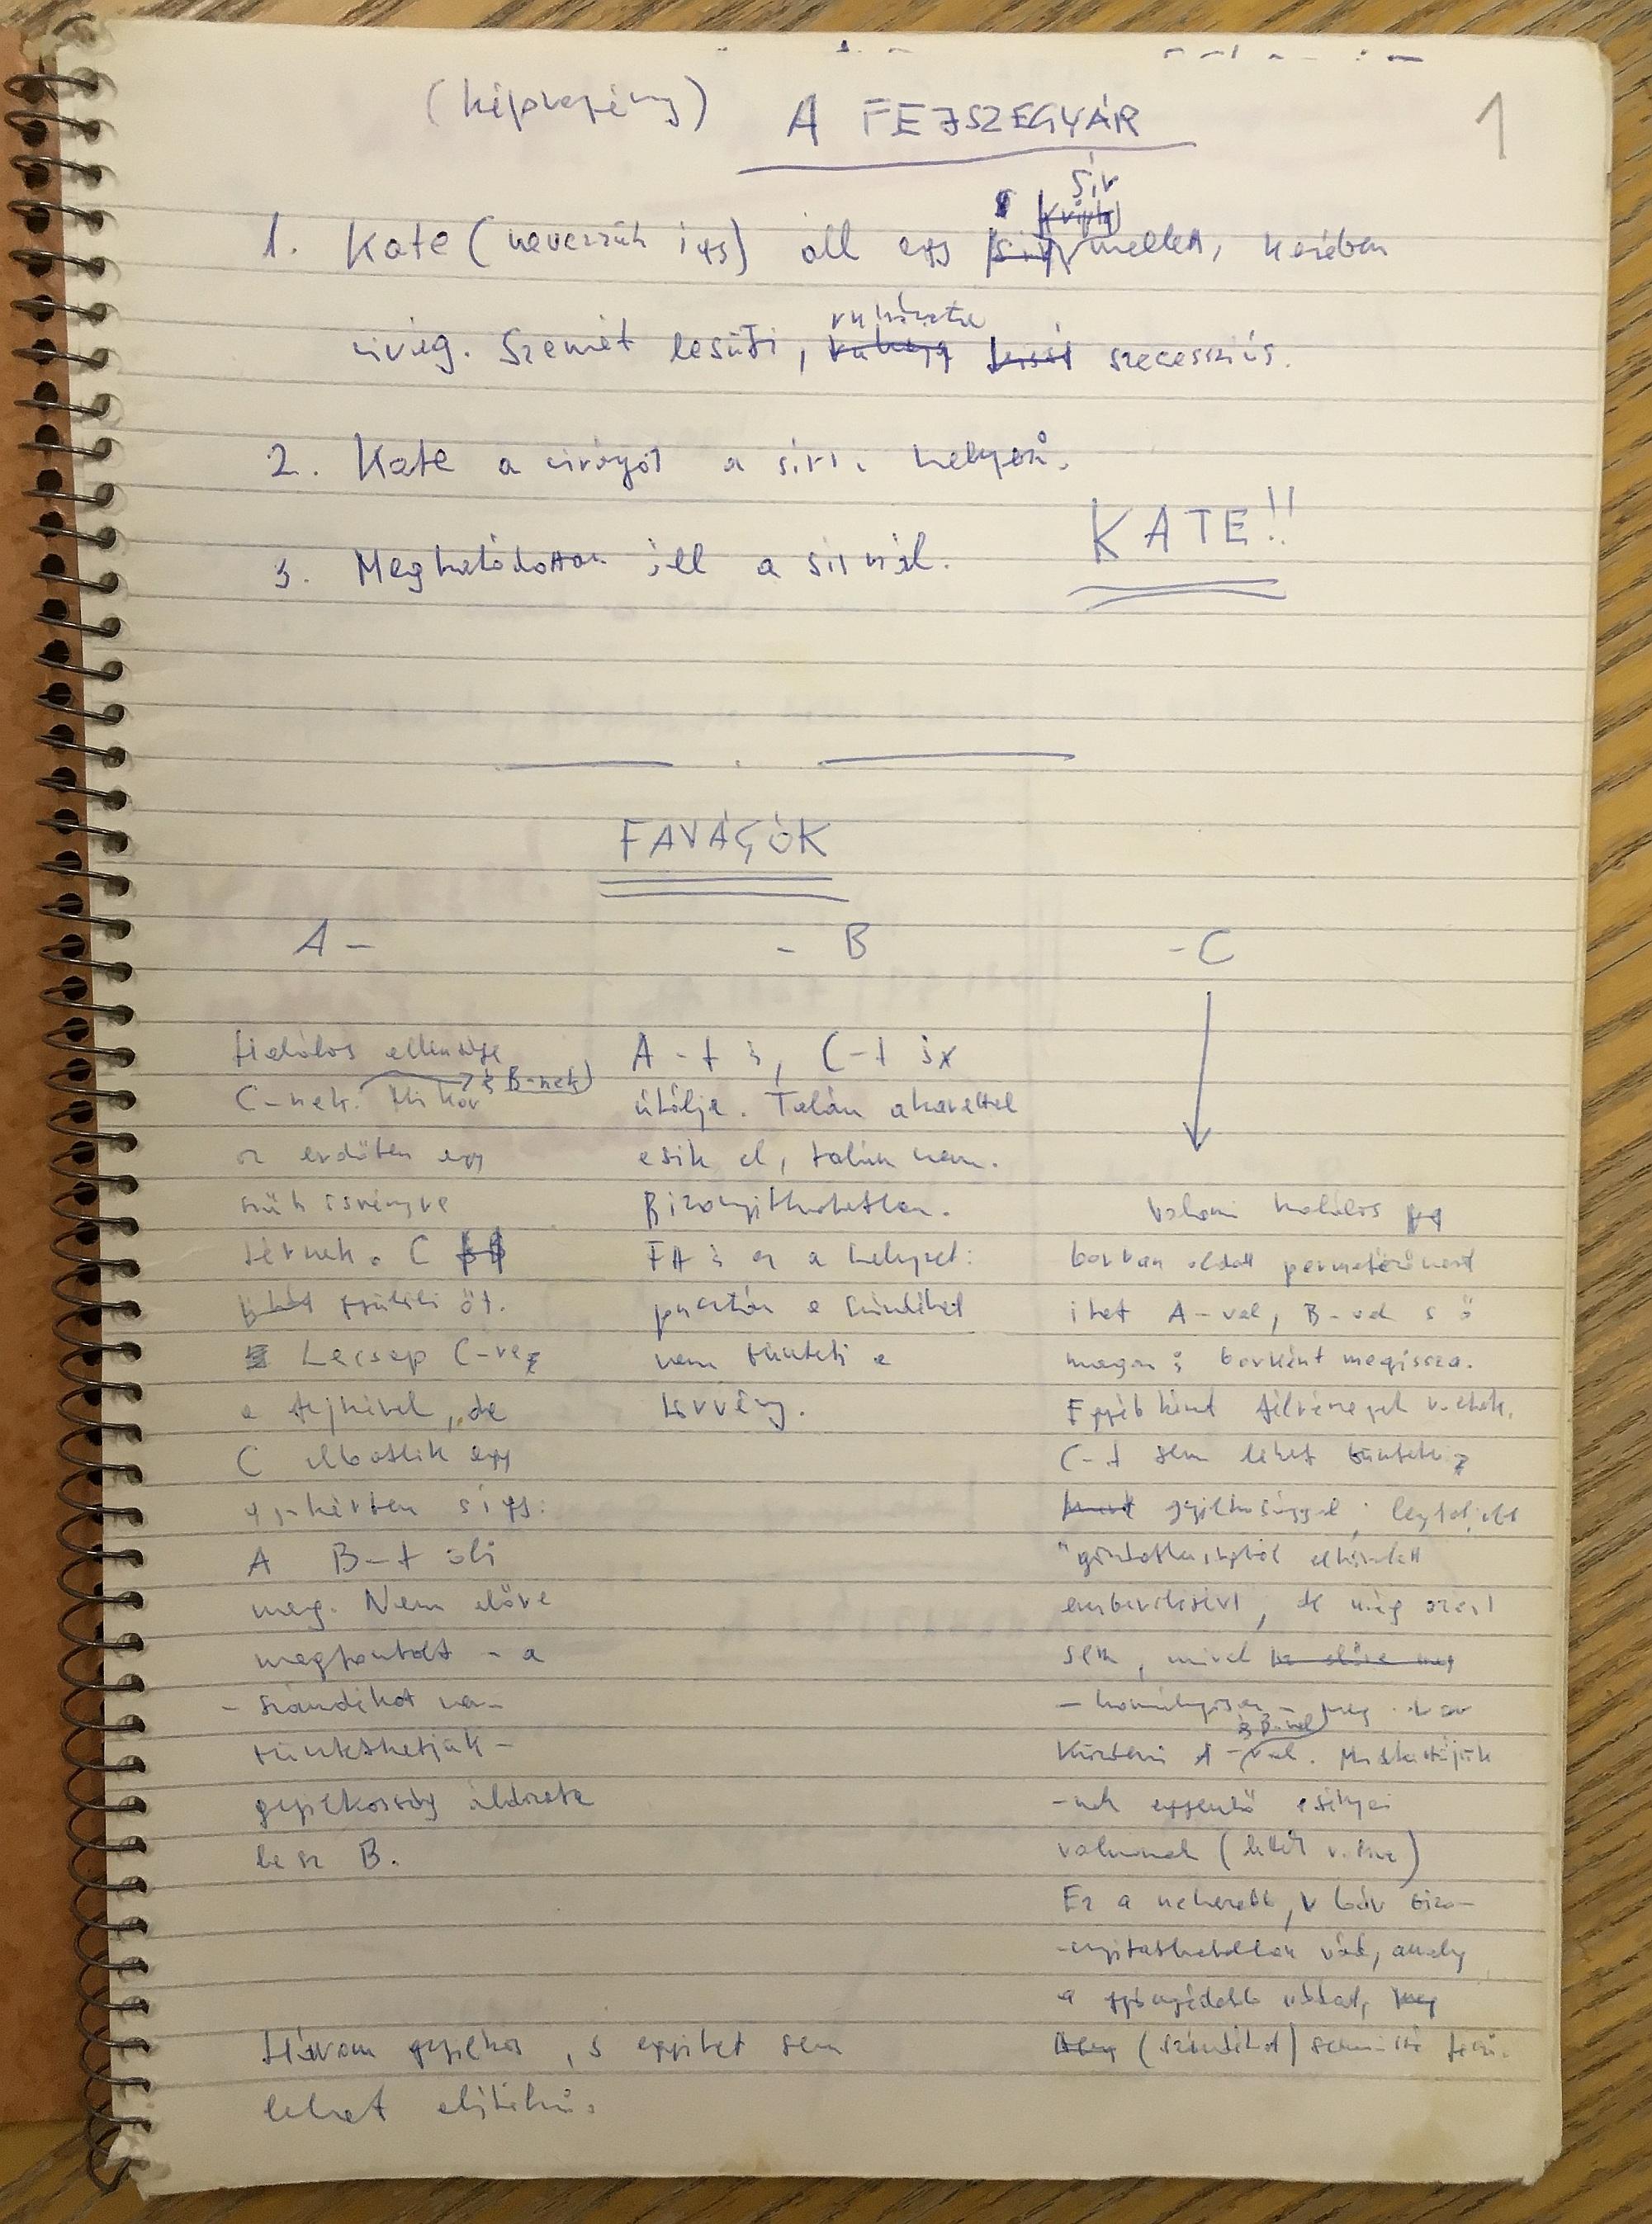 (képregény) A FEJSZEGYÁR
1
1. Kate (nevezzük így) áll egy sír mellett, kezében
virág. Szemét lesüti, ruházata szecessziós.
2. Kate a virágot a sírra helyezi.
3. Meghatódottan áll a sírnál.
KATE!!
FAVÁGÓK
A - - B - C
Halálos ellensége
C-nek. és B-nek Mikor
az erdőben egy
szűk ösvényre
térnek. C
gyűlöli őt.
Lecsap C-re,
a fejszével, de
C elbotlik egy
gyökérben s így:
A B-t öli
meg. Nem előre
megfontolt - a
- szándékot nem
büntethetjük -
gyilkosság áldozata
lesz B.
A-t is, C-t is
útálja. Talán akarattal
esik el, talán nem.
Bizonyíthatatlan.
Itt is ez a helyzet:
pusztán a szándékot
nem bünteti a
törvény.
Valami halálos
borban oldott permetezőszert
itat A-val, B-vel s ő
maga is borként megissza.
Egyébként félrészegek voltak.
C-t sem lehet büntetni,
gyilkossággal, legfeljebb
"gondatlanságból elkövetett
emberölésért, de még azért
sem, mivel
- homályosan - meg akar
küzdeni A-val. és B-vel
-nek egyenlő esélyei
vannak
Ez a nehezebb, bár bizo-
-nyíthatatlan vád, amely
a
(szándékot) semmissé teszi.
Három gyilkos, s egyiket sem
lehet elítélni.